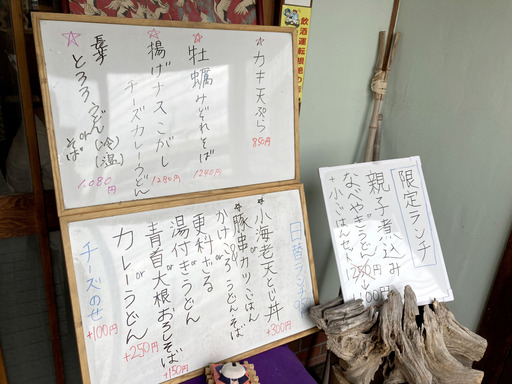 ☆カキ天ぷら
850円
☆牡蠣みぞれそば
1240円
☆揚げナスこがし
チーズカレーうどん
1280円
☆長芋
とろろうどん(冷)
or
そば(温)
1,080円
日替ランチ
*小海老天とじ丼
+300円
or
*豚串カツ・ごはん
かけ or うどん・そば
更科ざる
or
湯付きうどん
or
青首大根おろしそば
+150円
or
カレーうどん
+250円
チーズのせ
+100円
限定ランチ
親子煮込み
なべやきうどん
+小ごはんセット
1250円
飲酒運転根絶